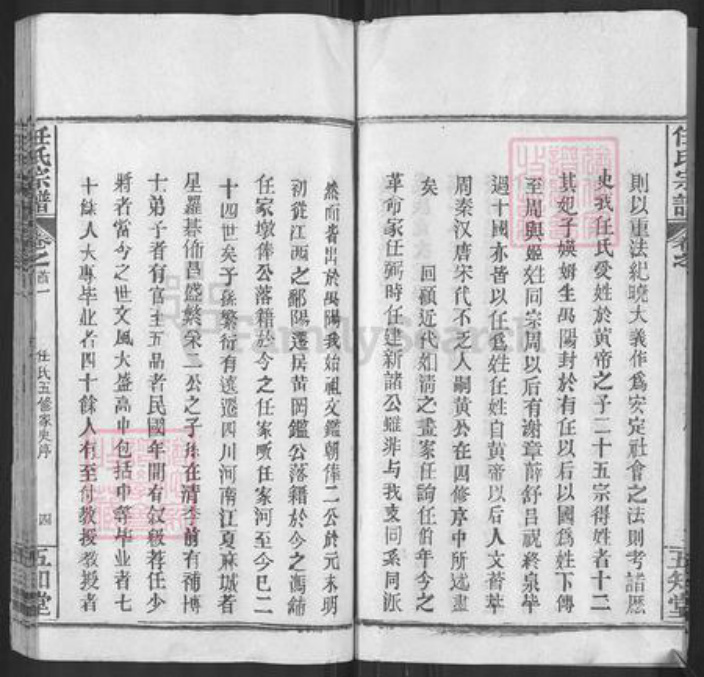 任氏宗譜
卷之
五知堂
則以重法紀曉大義作為安定社會之法則考諸歷
史我任氏受姓於黃帝之子二十五宗得姓者十二
其妃子嫫姆生禺陽封於有任以后以國為姓下傳
至周與姬姓同宗周以后有謝章薛舒呂祝終泉毕
過十國亦皆以任為姓任姓自黃帝以后人文薈萃
周秦汉唐宋代不乏人嗣黃公在四修序中所述盡
矣 回顧近代如清之畫家任詢任伯年今之
革命家任弼時任建新諸公雖非与我支同系同派
然而皆出於禺陽我始祖文鑑朝俸二公於元末明
初從江西之鄱陽遷居黃岡鑑公落籍於今之馮鋪
任家墩俸公落籍於今之任家畈任家河至今已二
十四世矣子孫繁衍有遠遷四川河南江夏麻城者
星羅棋佈昌盛繁榮二公之子孫在清季前有補博
士弟子者有官至五品者民國年間有敘級荐任少
將者當今之世文風大盛高中包括中等毕业者七
十餘人大專毕业者四十餘人有至付教授教授者
任氏宗譜
卷之首一
任氏五修家史序
四
五知堂
FamilySearch